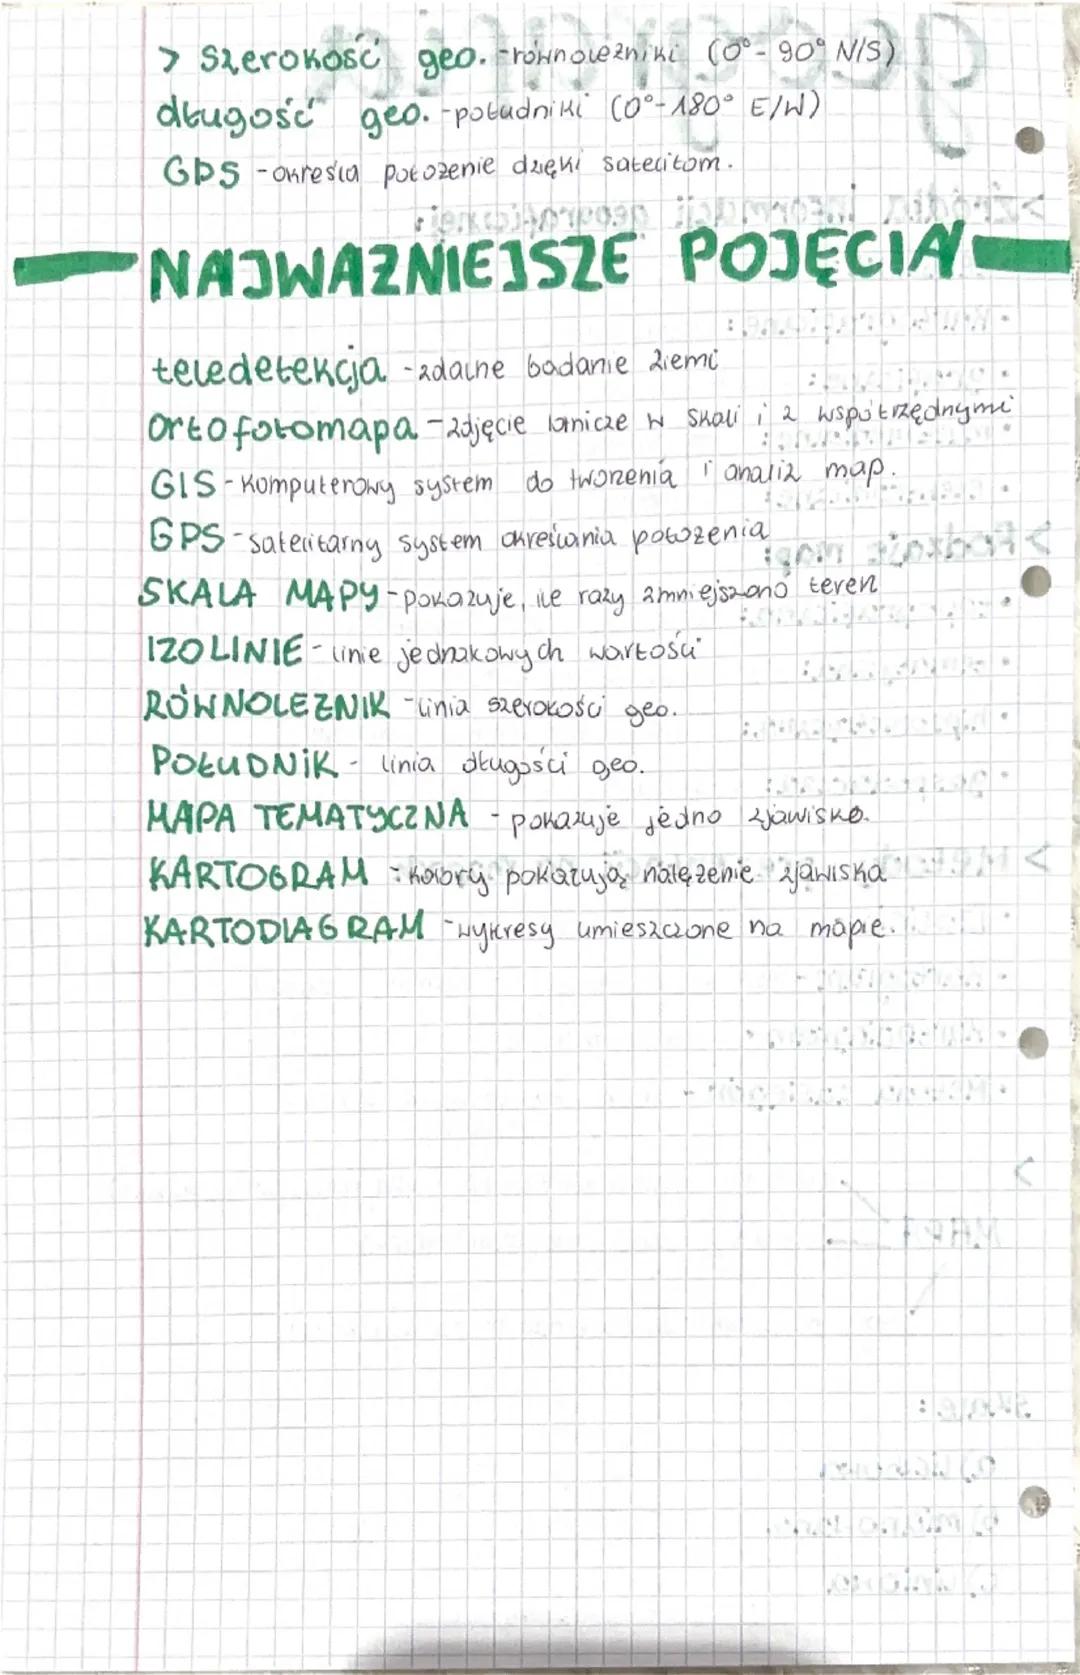 > Szerokość geo. - równoleżniki (0° - 90° N/S)
długość geo. - południki (0°-180° E/W)
GPS - określa położenie dzięki satelitom.
NAJWAŻNIEJSZE POJĘCIA
teledetekcja - zdalne badanie ziemi
Ortofotomapa - zdjęcie lotnicze w skali i z współrzędnymi
GIS - Komputerowy system do tworzenia i analiz map.
GPS - satelitarny system określania położenia
SKALA MAPY - pokazuje, ile razy zmniejszono teren
IZOLINIE - linie jednakowych wartości
RÓWNOLEŻNIK - linia szerokości geo.
POŁUDNIK - linia długości geo.
MAPA TEMATYCZNA - pokazuje jedno zjawisko.
KARTOGRAM - kolory pokazują natężenie zjawiska
KARTODIAGRAM - wykresy umieszczone na mapie.